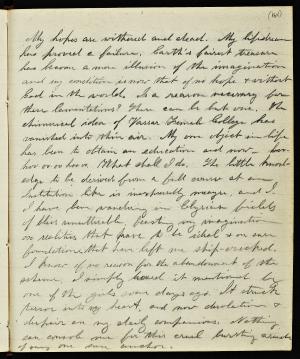 (60)
My hopes are withered and dead. My life dream
has proved a failure, Earth's fairest treasure
has become a mere illusion of the imagination
and my condition is now that of no hope & without
God in the world. Is a reason necessary for
these lamentations? There can be but one, the
chimerical idea of Vassar Female College has
vanished into thin air. My one object in life
has been to obtain an education and now
What shall I do. The little knowl-
edge to be derived from a full course at an
Institution like is inexpressibly meagre, and I,
I have been wandering in Elysian fields
of this unutterable feasting my imagination
on realities that prove to be ideal & on sure
foundations that have left me ship-wrecked.
I know of no reason for the abandonment of the
scheme, I simply heard it mentioned by
one of the girls some days ago. It struck
terror into my heart, and now desolation &
despair are my daily companions. Nothing
can console me for this cruel bursting asunder
of my one dear anchor.